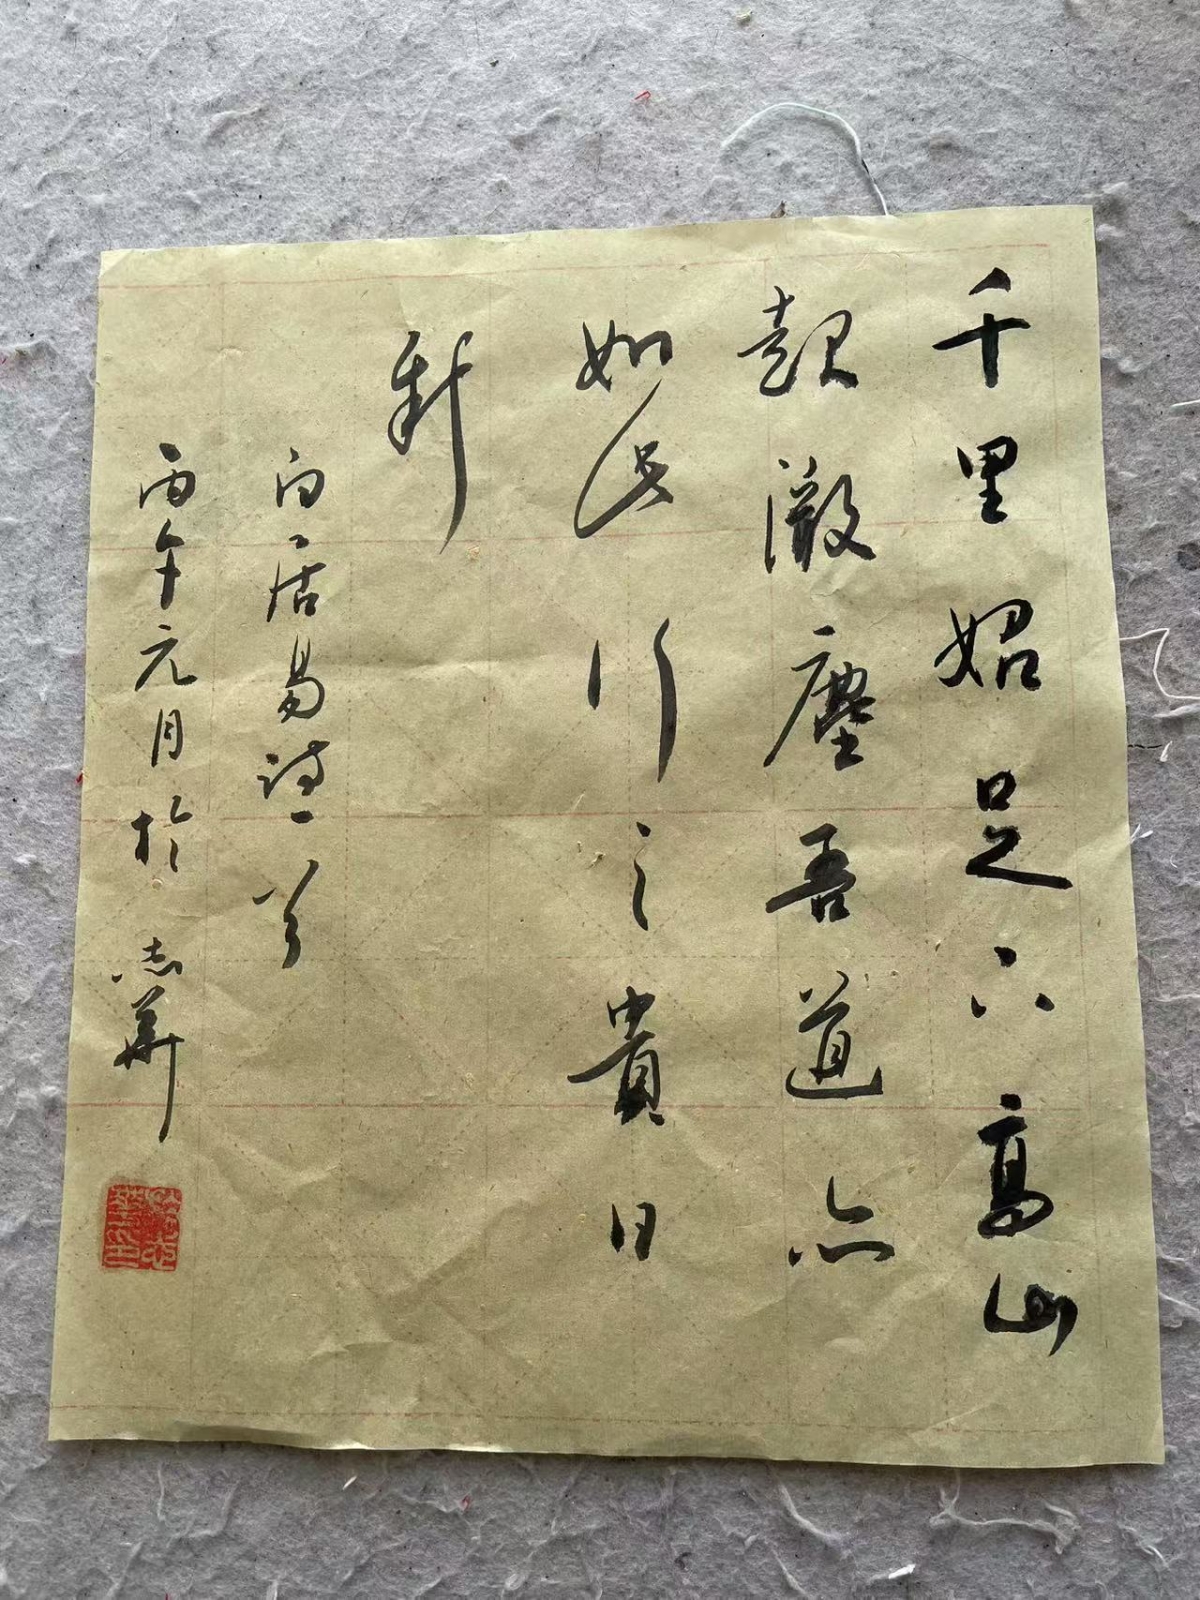 千里始足下高山
起微塵吾道亦
如此行之貴日
新
白居易詩一首
丙午元月於志華